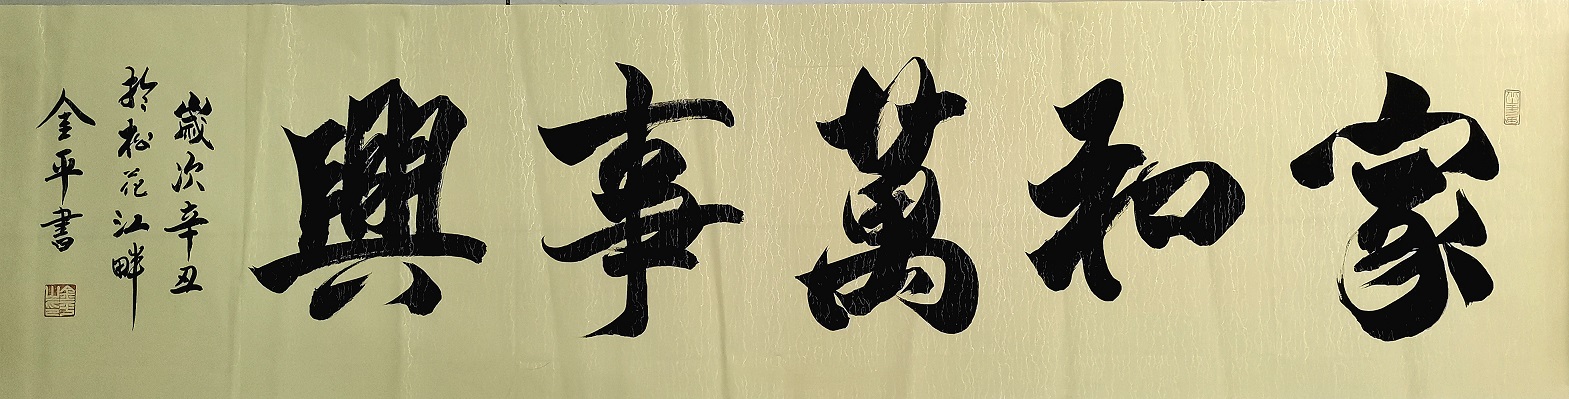 家和萬事興
歲次辛丑
於松花江畔
金平書